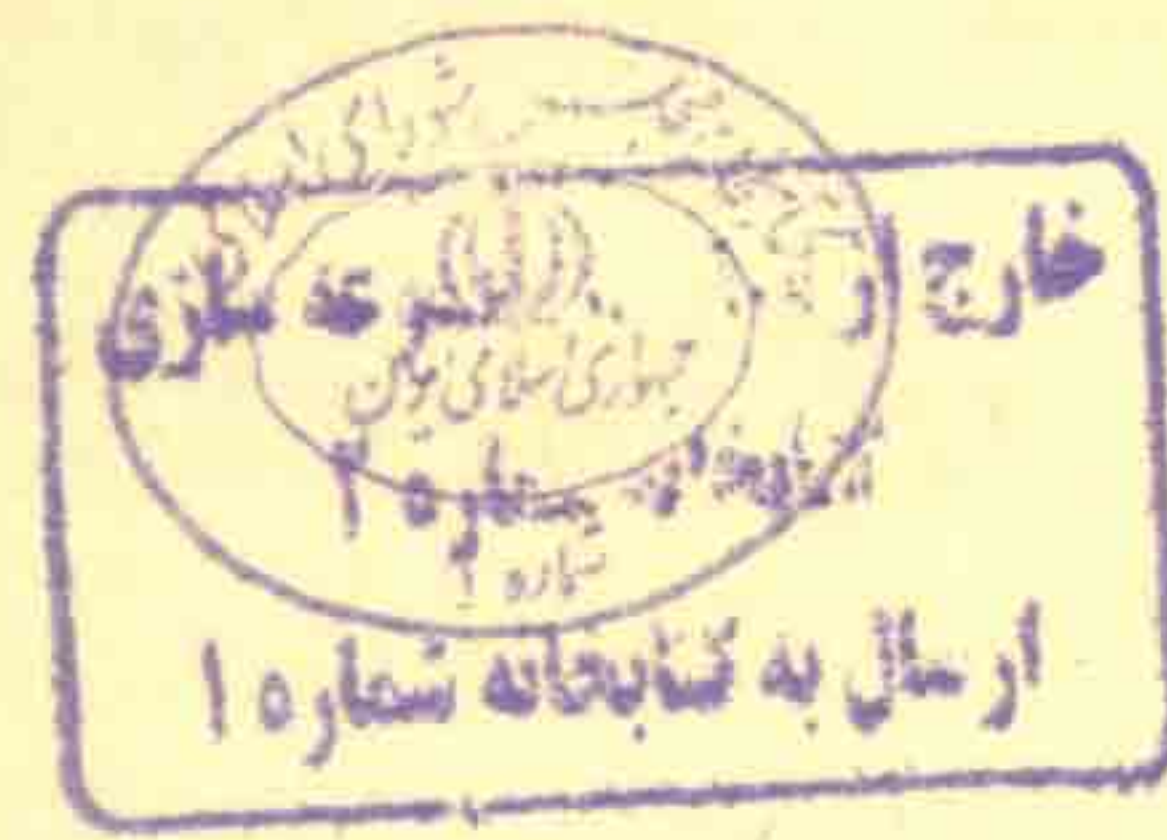 شورای
خارج از مجموعه سازی
جمهوری اسلامی ایران
کتابخانه شماره ۲
شماره ۲
ارسال به کتابخانه شماره ۱